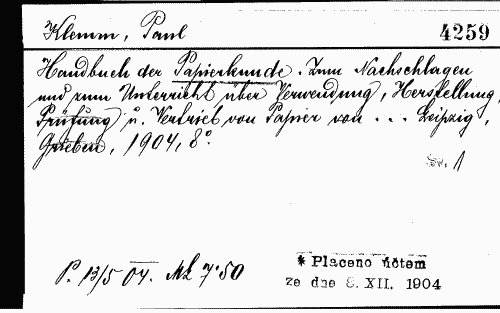 Klemm, Paul
4259
Handbuch der Papierkunde. Zum Nachschlagen
und zum Unterricht über Verwendung, Herstellung,
Prüfung u. Vertrieb von Papier von ... Leipzig,
Grieben, 1904, 8°.
1
P. 13/5 04. Mk 7·50
* Placeno účtem
ze dne 8. XII. 1904